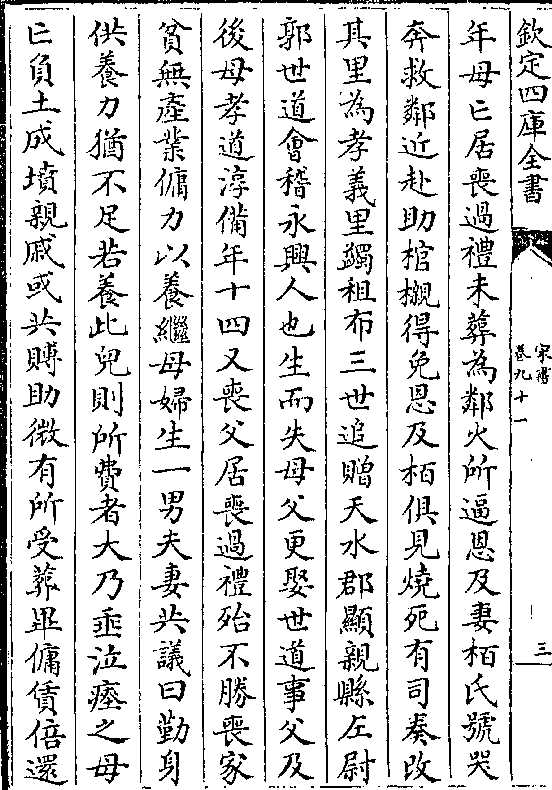 欽定四庫全書
宋書
卷九十一
三
年母亡居喪過禮未葬為鄰火所逼恩及妻栢氏號哭
奔救鄰近赴助棺櫬得免恩及栢俱見燒死有司奏改
其里為孝義里蠲租布三世追贈天水郡顯親縣左尉
郭世道會稽永興人也生而失母父更娶世道事父及
後母孝道淳備年十四又喪父居喪過禮殆不勝喪家
貧無產業傭力以養繼母婦生一男夫妻共議曰勤身
供養力猶不足若養此兒則所費者大乃垂泣瘞之母
亡負土成墳親戚或共賻助微有所受葬畢傭賃倍還